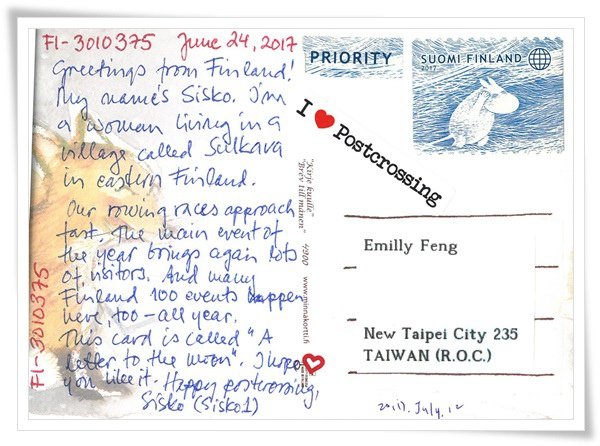 FI-3010375 June 24, 2017
Greetings from Finland!
My name's Sisko. I'm
a woman living in a
village called Sulkava
in eastern Finland.
Our rowing races approach
fast. The main event of
the year brings again lots
of visitors. And many
Finland 100 events happen
here, too – all year.
This card is called "A
letter to the moon". I hope
you like it. Happy postcrossing,
Sisko (Sisko1)
FI-3010375
"Kirje kuulle"
"Brev till månen"
www.minnakortti.fi
PRIORITY
SUOMI FINLAND
2017
I ❤ Postcrossing
Emilly Feng
New Taipei City 235
TAIWAN (R.O.C.)
2017. July. 12